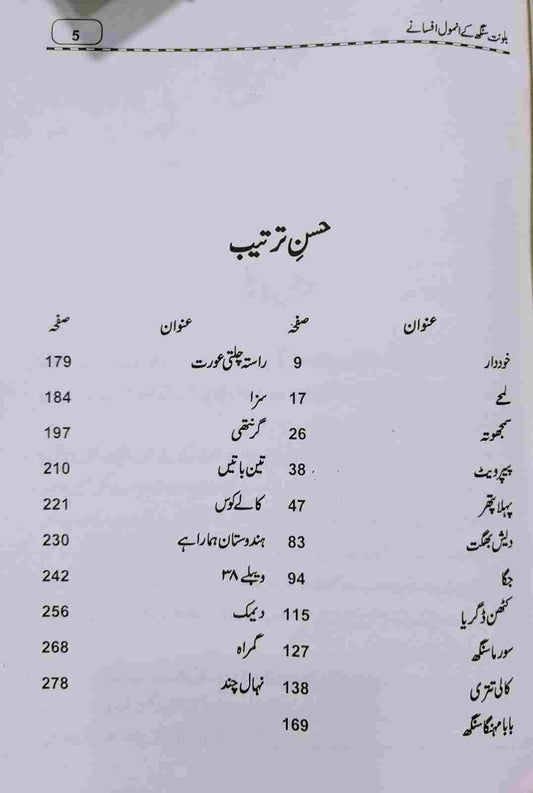 بلونت سنگھ کے انمول افسانے 5
حسنِ ترتیب
عنوان صفحہ عنوان صفحہ
خوددار 9 راستہ چلتی عورت 179
لمحے 17 سزا 184
سمجھوتہ 26 گرنتھی 197
پیپرویٹ 38 تین باتیں 210
پہلا پتھر 47 کالے کوس 221
دیش بھگت 83 ہندوستان ہمارا ہے 230
جگا 94 ویبلے ۳۸ 242
کٹھن ڈگریا 115 دیمک 256
سورما سنگھ 127 گمراہ 268
کالی تتری 138 نہال چند 278
بابا مہنگا سنگھ 169